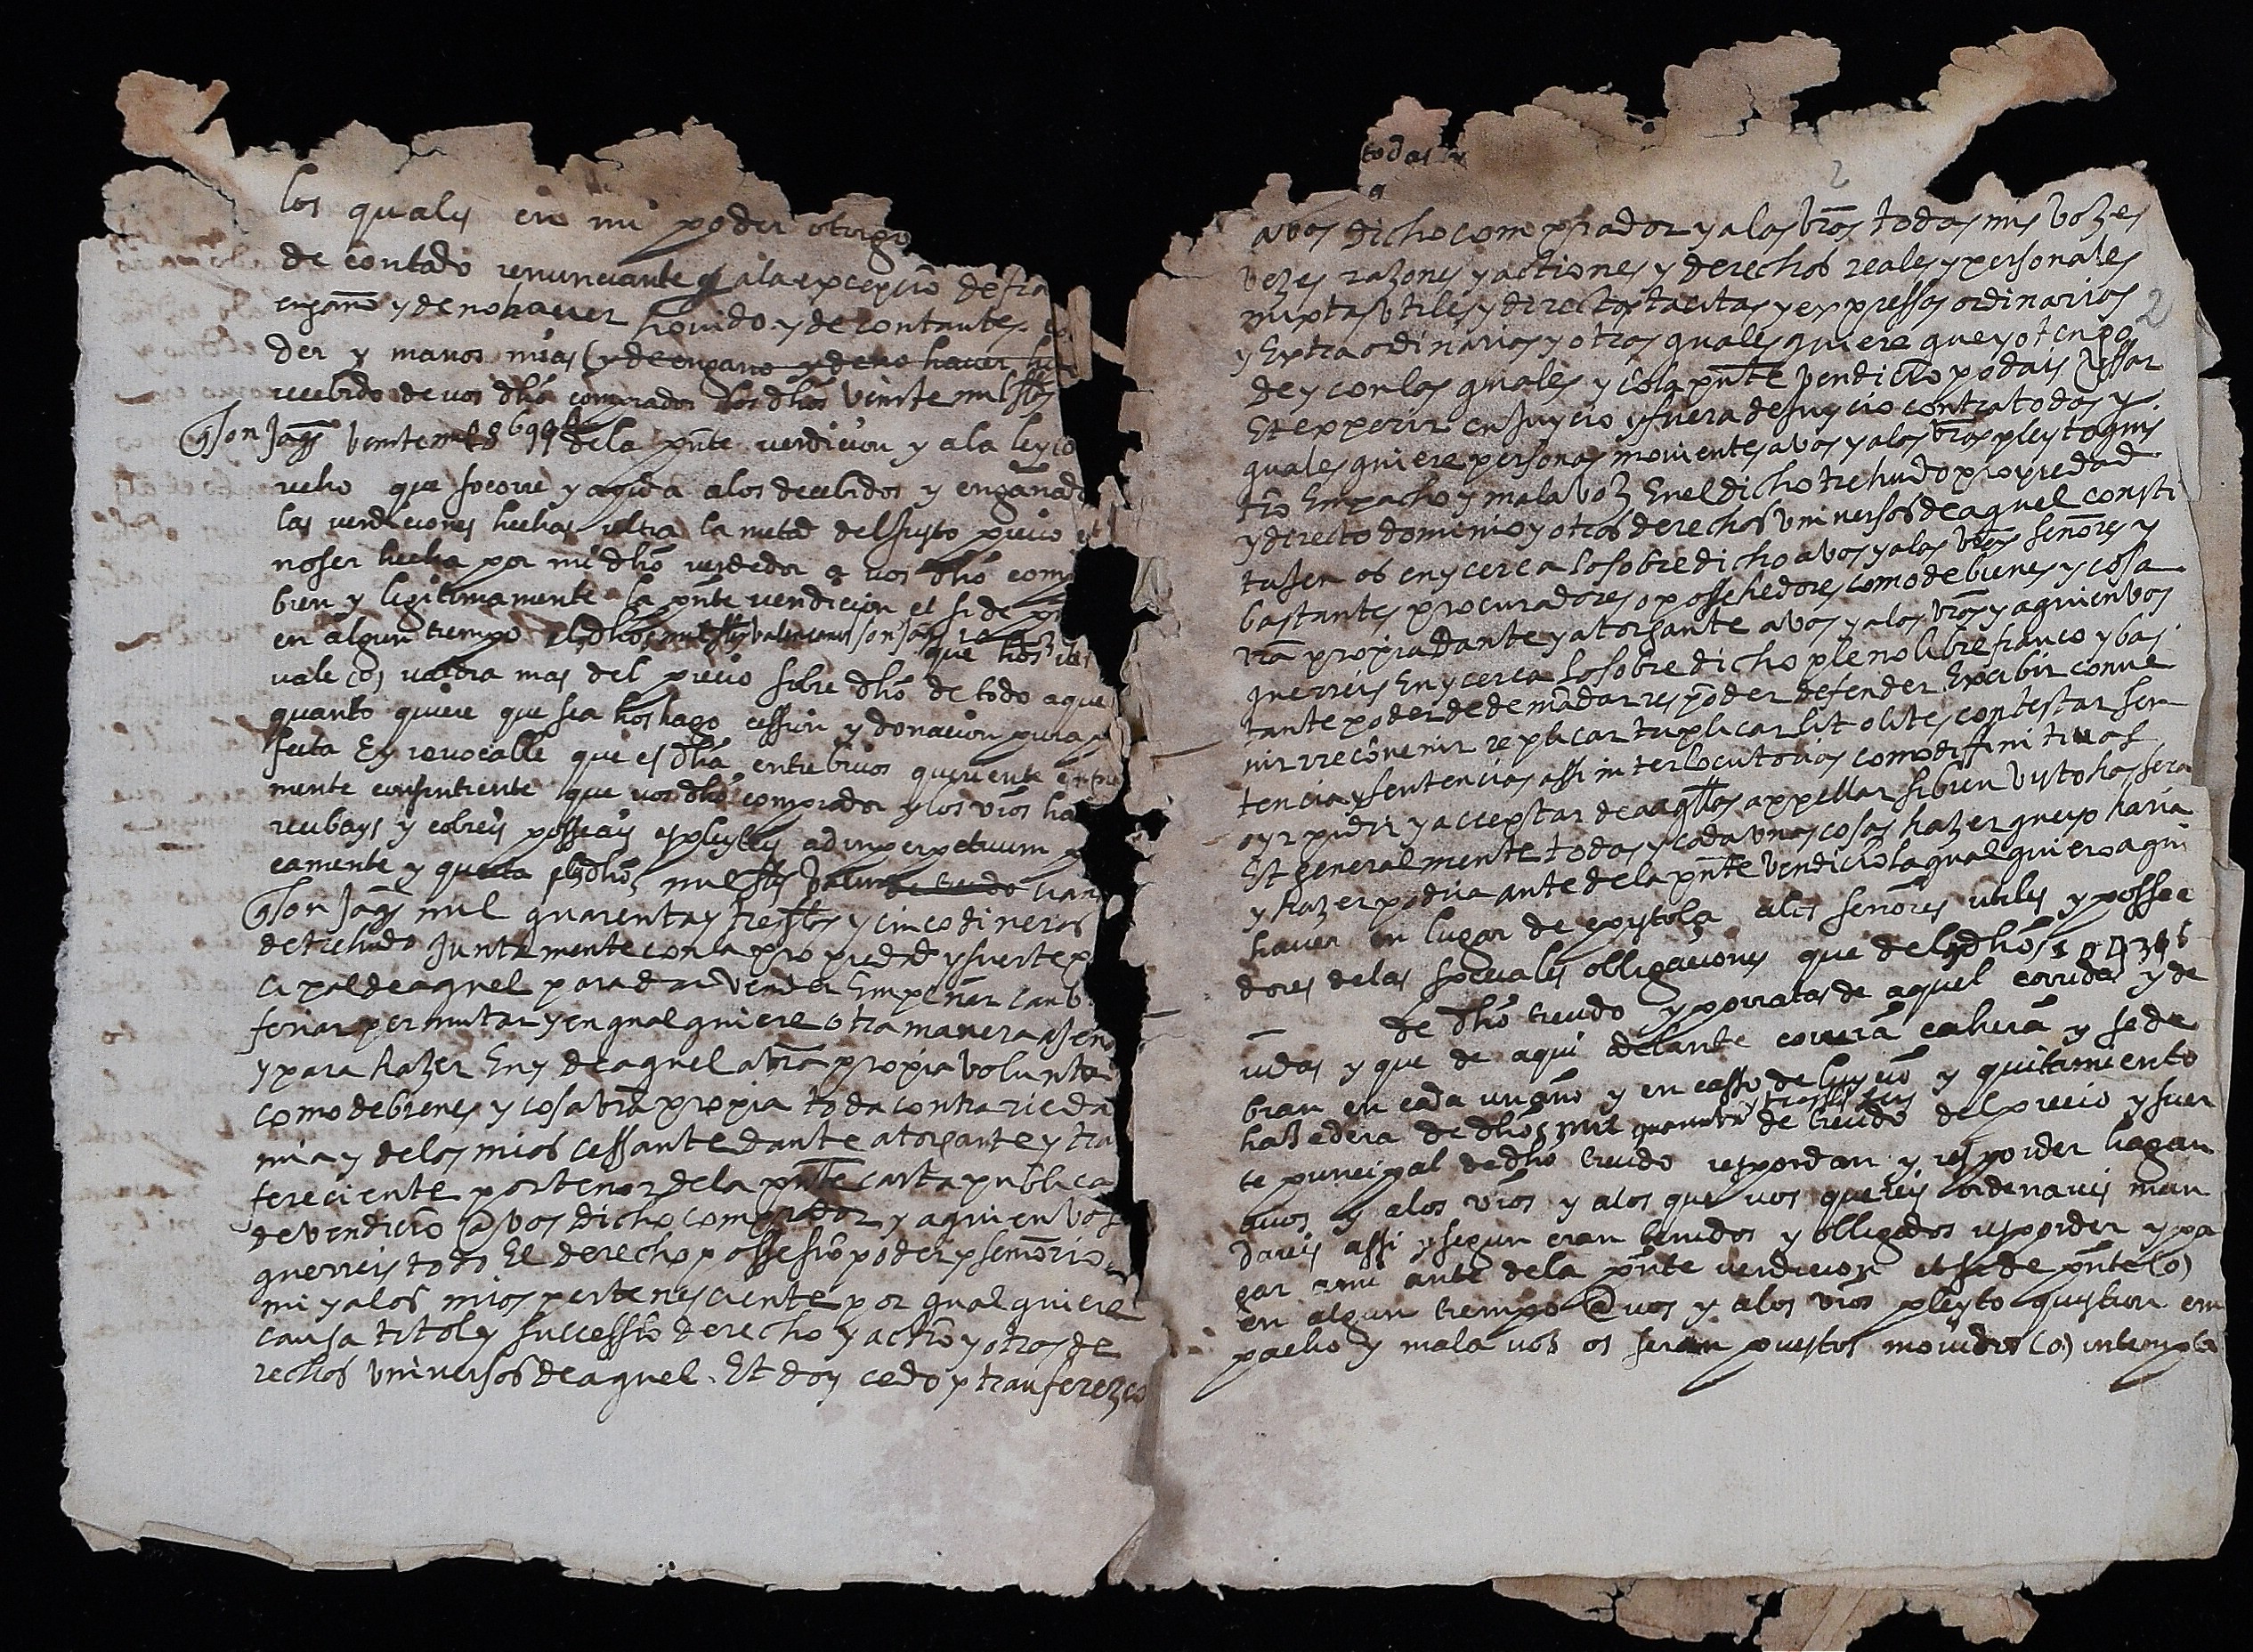 los quales en mi poder otorgo
de contado renunciante a la excepcio de fra
engaño y de no haver hovido y de contantes
der y manos mias (y de engaño y de no haver
recebido de vos dho comprador los dhos veinte mil ss
son jaqs veinte mil 8 6 99 de la pnte vendicion y a la ley
recho que socorre y ayuda a los decebidos y engañad
las vendiciones hechas ultra la mitad del justo precio et
no ser hecha por mi dho vendedor a vos dho com
bien y legitimamente la pnte vendicion et si de p
en algun tiempo valencianos son jaqs
que hos
vale (o) valdra mas del precio sobre dho de todo aque
quanto quiere que sea hos hago cession y donacion pura
fecta Eyrrevocable que es dha entre bivos queriente
mente consintiente que vos dho comprador y los vros ha
recibays y cobreis posseais espleyteis ad imperpetuum
camente y quieta mil ss
son jaqs mil quarenta y tres ss y cinco dineros
de trehudo juntamente con la propiedad y suerte p
cipal de aquel para dar vender Empeñar camb
feriar permutar y en qualquiere otra manera agen
y para hazer En y de aquel a vra propia volunta
como de bienes y cosa vra propia toda contrarieda
mia y de los mios cessante dante atorgante y tra
fereciente por tenor de la pnte carta publica
de vendicio @ vos dicho comprador y a quien vos
querreis todo El derecho possessio poder y señorio
mi y a los mios pertenesciente por qualquiere
causa titol y successio derecho y actio y otros de
rechos universos de aquel. Et doy cedo y transferezco
todas
2
a vos dicho comprador y a los vros todas mis vozes
vezes razones y actiones y derechos reales y personales
mixtas utiles y directos tacitas y expressas ordinarias
2
y Extraordinarias y otras qualesquiere que yo tengo
de y con las quales y co la pnte vendicio podais ussar
Et experir en juycio y fuera de juycio contra todas y
qualesquiere personas movientes a vos y a los vros pleyto quis
tio Empacho y mala voz En el dicho trehudo propiedad
y directo dominio y otros derechos universos de aquel consti
tuhen os en y cerca lo sobredicho a vos y a los vros señores y
bastantes procuradores o possehedores como de bienes y cosa
vra propia dante y atorgante a vos y a los vros y a quien vos
querreis En y cerca lo sobredicho pleno libre franco y bas
tante poder de demadar respoder defender Excibir conve
nir recovenir replicar triplicar lit o lites contestar sen
tencia y sentencias assi interlocutorias como diffinitivas
oyr pidir y acceptar de aqllas appellar si bien visto hos sera
Et generalmente todas y cada unas cosas hazer que yo haria
y hazer podria ante de la pnte vendicio la qual quiero aqui
haver en lugar de epistola a los señores utiles y possee
dores de las speciales obligaciones que de los dhos 1043 ss
de dho treudo y porratas de aquel corridas y de
vidas y que de aqui adelante correra caheran y se de
bran en cada un año y en casso de luycio y quitamiento
y tres ss
hazedera de dhos mil quarenta de treudo del precio y suer
te principal de dho treudo respondan y responder hagan
a vos y a los vros y a los que vos querreis ordenareis man
dareis assi y segun eran tenidos y obligados responder y pa
gar a mi ante de la pnte vendicion et si de pnte (o)
en algun tiempo @ vos y a los vros pleyto question em
pacho y mala voz os seran puestos movidos (o) intempta